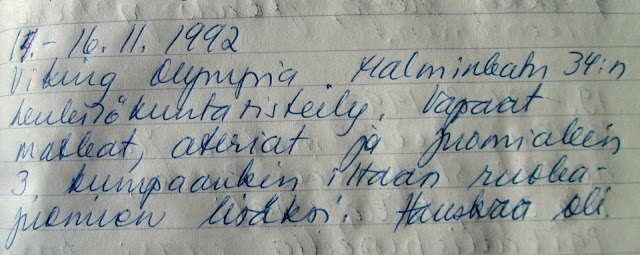 14.- 16.11. 1992
Viking Olympia. Malminkatu 34:n
henkilökuntaristeily. Vapaat
matkat, ateriat ja juomiakin
3 kumpaankin iltaan ruoka-
juomien lisäksi. Hauskaa oli.